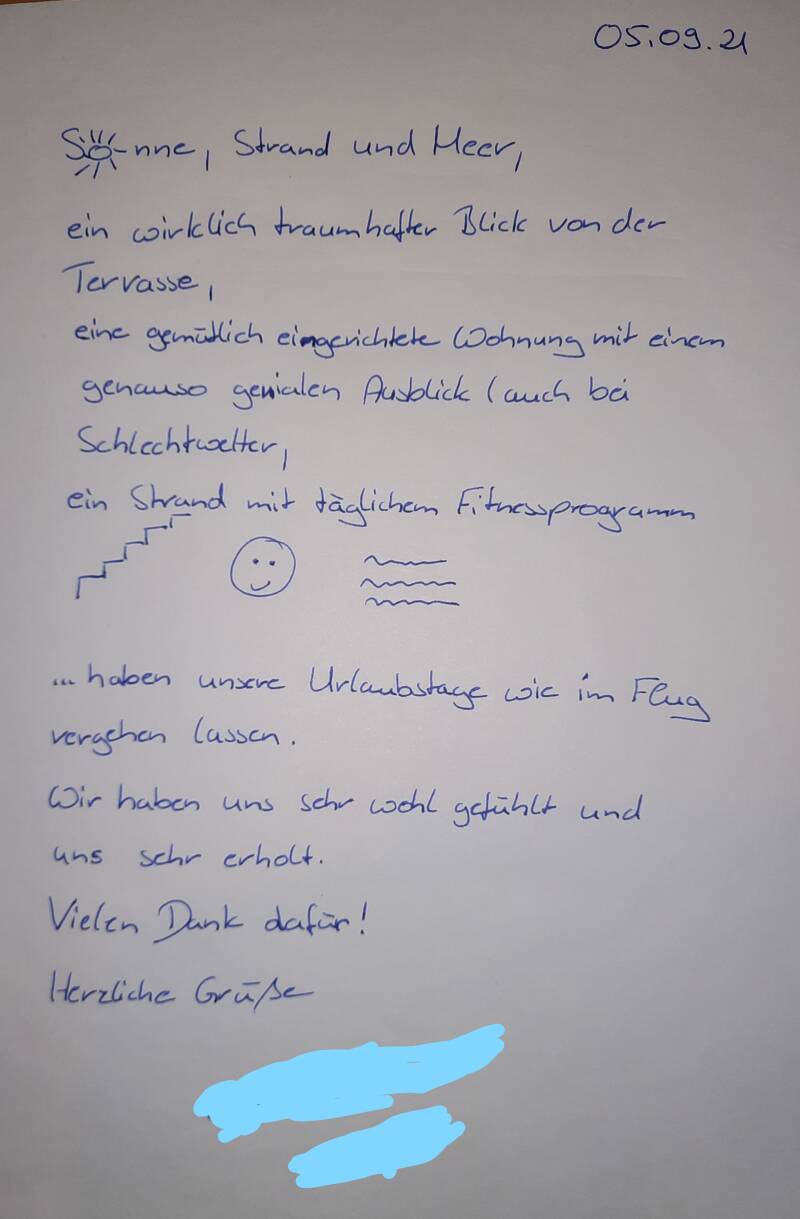 05.09.21
Sonne, Strand und Meer,
ein wirklich traumhafter Blick von der
Terrasse,
eine gemütlich eingerichtete Wohnung mit einem
genauso genialen Ausblick (auch bei
Schlechtwetter,
ein Strand mit täglichem Fitnessprogramm
... haben unsere Urlaubstage wie im Flug
vergehen lassen.
Wir haben uns sehr wohl gefühlt und
uns sehr erholt.
Vielen Dank dafür!
Herzliche Grüße